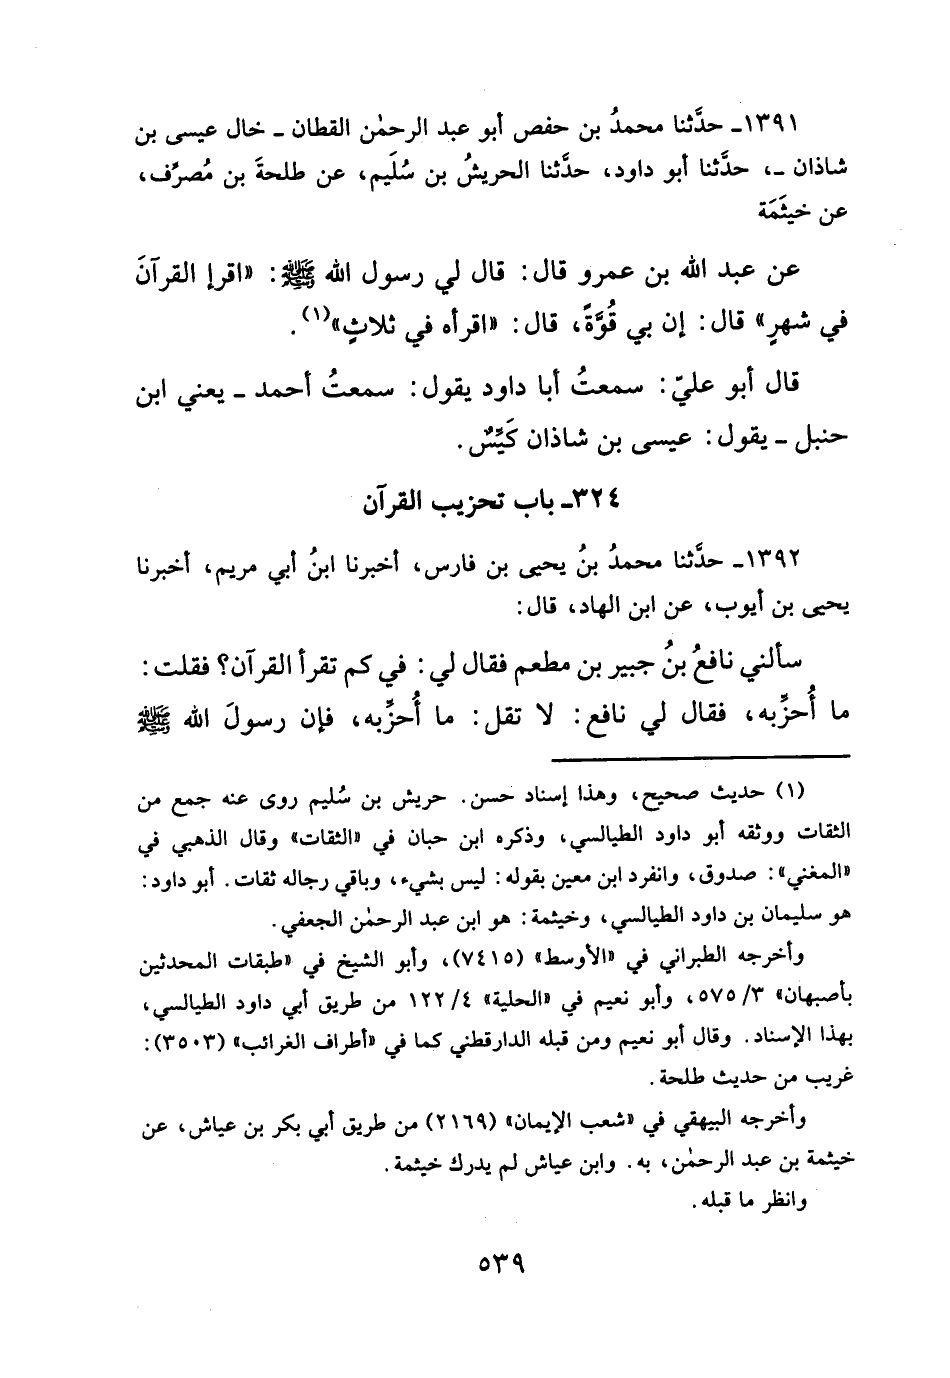 ١٣٩١ـ حدَّثنا محمدُ بن حفص أبو عبد الرحمٰن القطان ـ خال عيسى بن
شاذان ـ، حدَّثنا أبو داود، حدَّثنا الحريشُ بن سُلَيم، عن طلحةَ بن مُصرِّف،
عن خيثَمَة
عن عبد الله بن عمرو قال: قال لي رسول الله ﷺ: «اقرإ القرآنَ
في شهرٍ» قال: إن بي قُوَّةً، قال: «اقرأه في ثلاثٍ»(١).
قال أبو عليّ: سمعتُ أبا داود يقول: سمعتُ أحمد ـ يعني ابن
حنبل ـ يقول: عيسى بن شاذان كَيِّسٌ.
٣٢٤ـ باب تحزيب القرآن
١٣٩٢ـ حدَّثنا محمدُ بنُ يحيى بن فارس، أخبرنا ابنُ أبي مريم، أخبرنا
يحيى بن أيوب، عن ابن الهاد، قال:
سألني نافعُ بنُ جبير بن مطعم فقال لي: في كم تقرأ القرآن؟ فقلت:
ما أُحزِّبه، فقال لي نافع: لا تقل: ما أُحزِّبه، فإن رسولَ الله ﷺ
(١) حديث صحيح، وهذا إسناد حسن. حريش بن سُليم روى عنه جمع من
الثقات ووثقه أبو داود الطيالسي، وذكره ابن حبان في «الثقات» وقال الذهبي في
«المغني»: صدوق، وانفرد ابن معين بقوله: ليس بشيء، وباقي رجاله ثقات. أبو داود:
هو سليمان بن داود الطيالسي، وخيثمة: هو ابن عبد الرحمٰن الجعفي.
وأخرجه الطبراني في «الأوسط» (٧٤١٥)، وأبو الشيخ في «طبقات المحدثين
بأصبهان» ٣/ ٥٧٥، وأبو نعيم في «الحلية» ٤/ ١٢٢ من طريق أبي داود الطيالسي،
بهذا الإسناد. وقال أبو نعيم ومن قبله الدارقطني كما في «أطراف الغرائب» (٣٥٠٣):
غريب من حديث طلحة.
وأخرجه البيهقي في «شعب الإيمان» (٢١٦٩) من طريق أبي بكر بن عياش، عن
خيثمة بن عبد الرحمٰن، به. وابن عياش لم يدرك خيثمة.
وانظر ما قبله.
٥٣٩